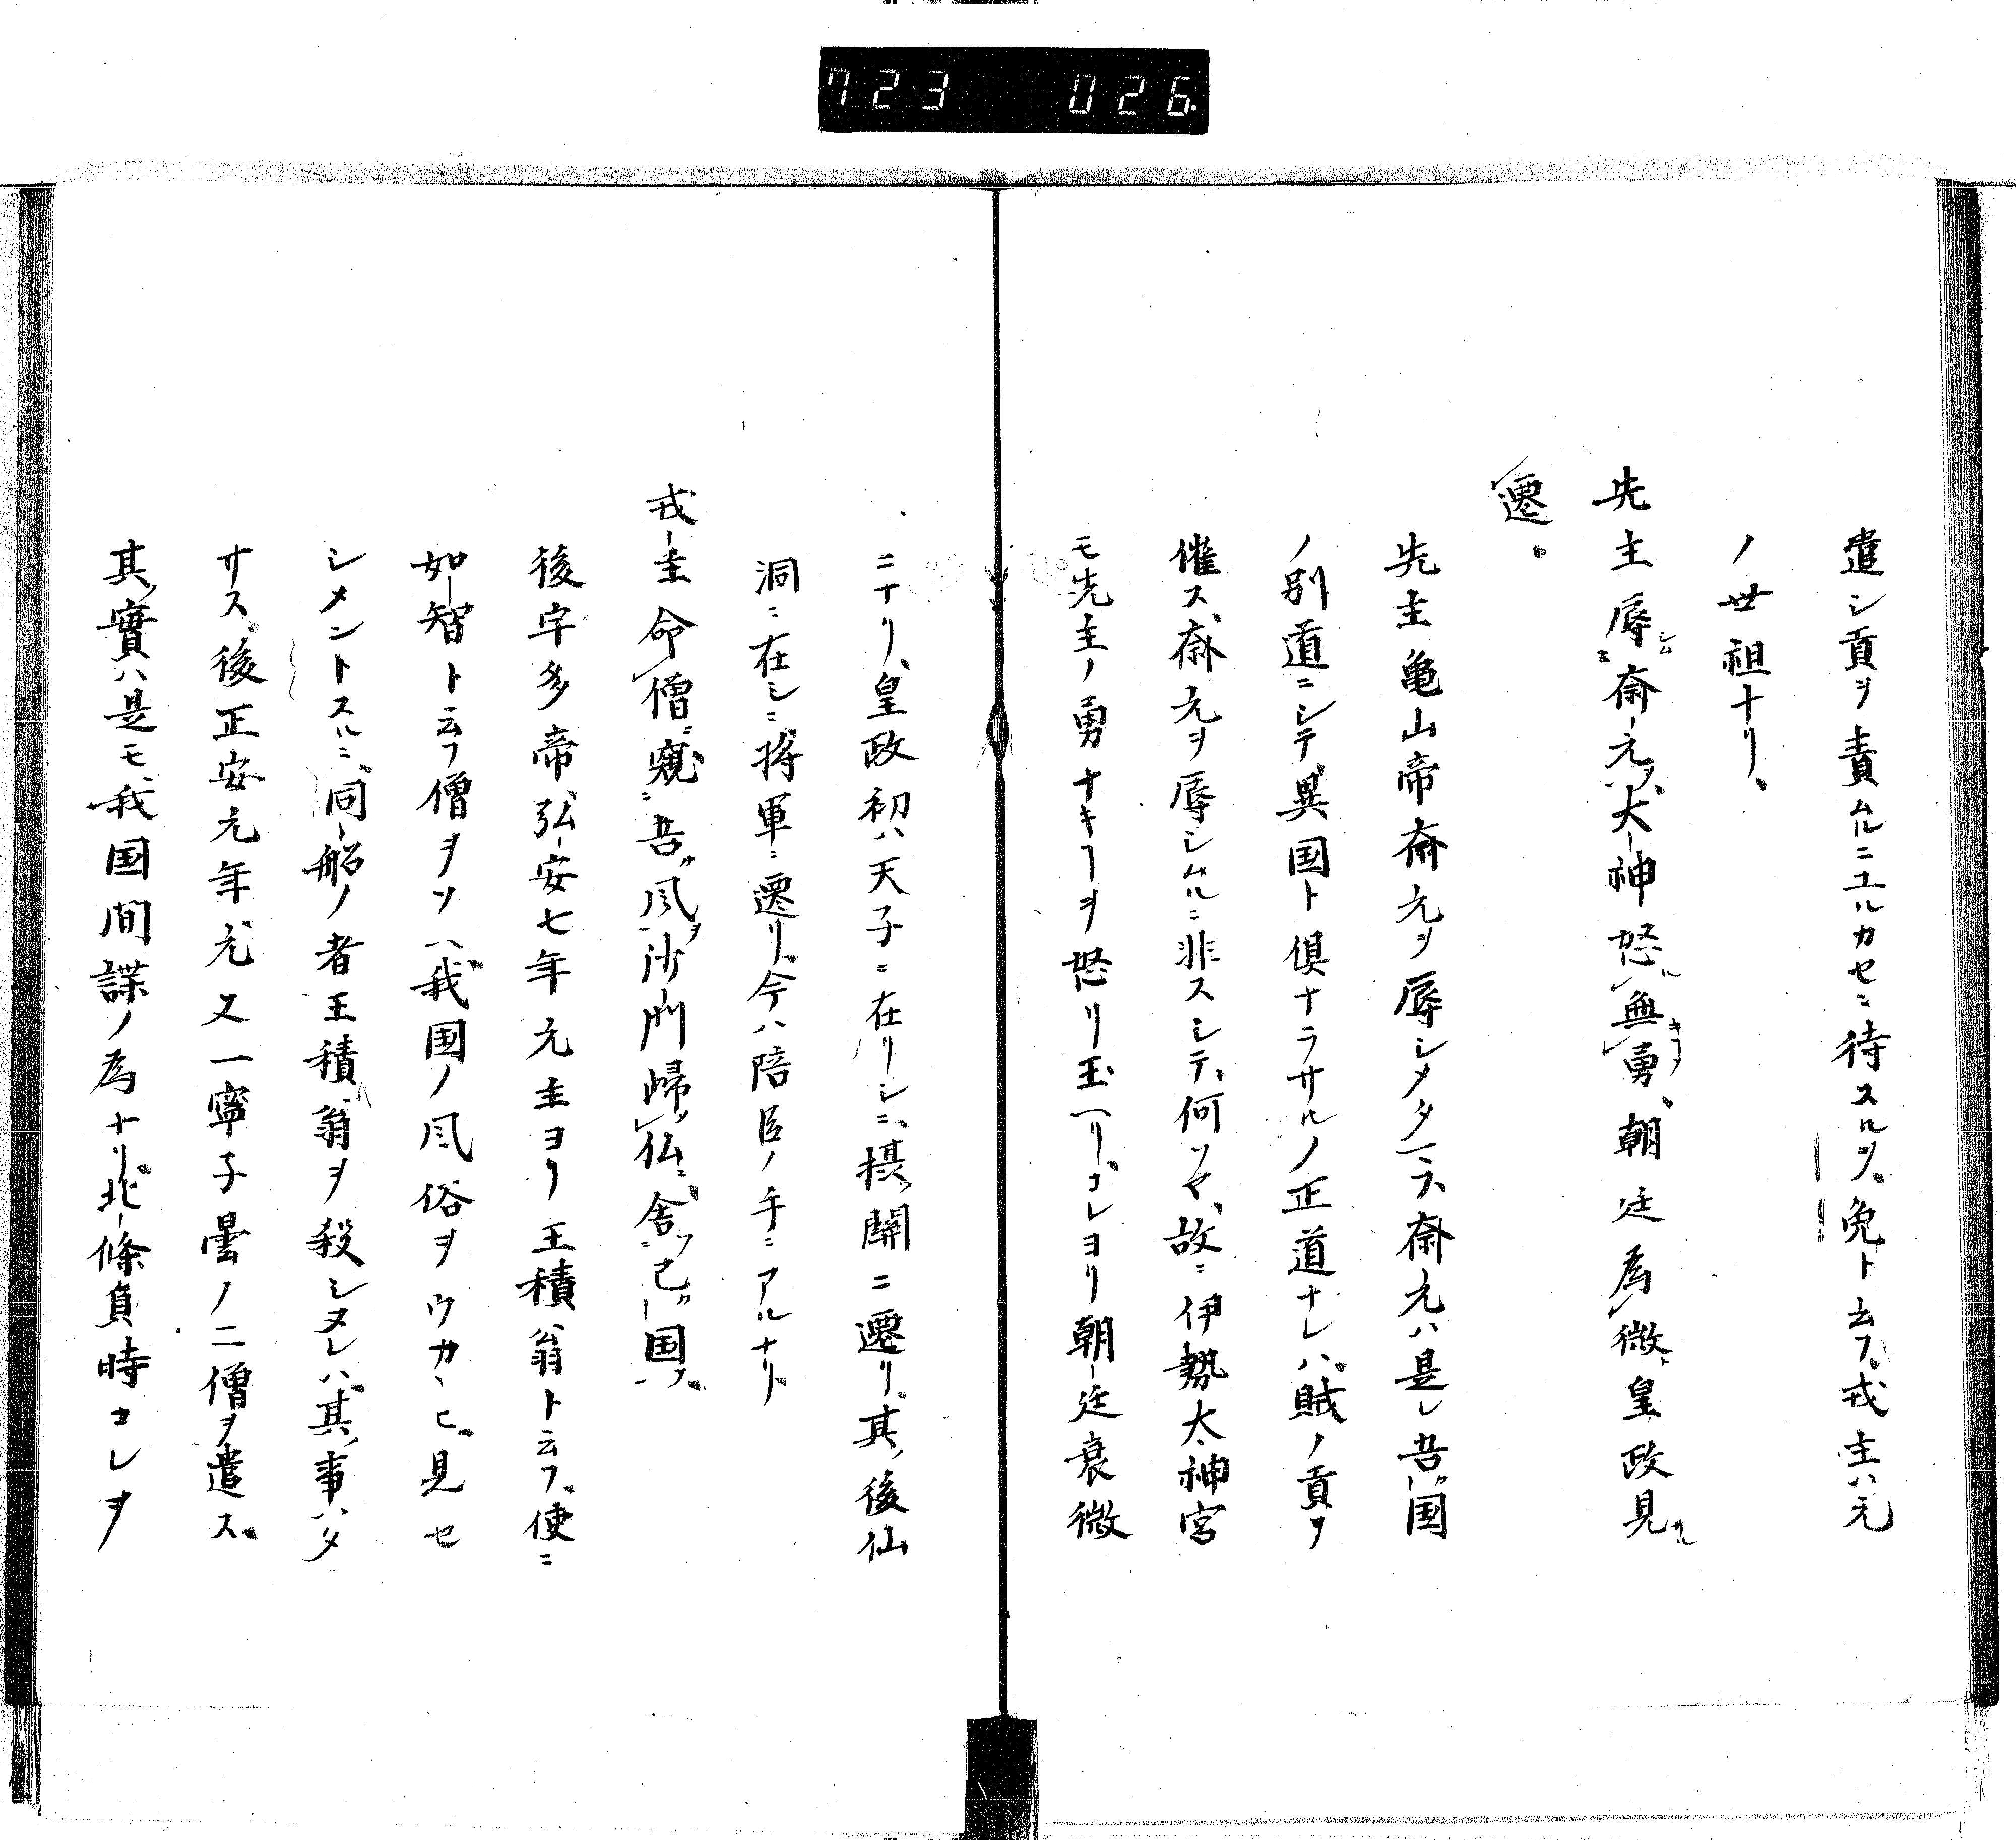 723 026
遣シ貢ヲ責ムルニユルカセニ待スルヲ、免ト云フ、戎主ハ元
ノ世祖ナリ、
先主辱シムニ斎元ヲ、大神怒ル無キフヲ勇、朝廷為微、皇政見ル
遷、
先主亀山帝斎元ヲ辱シメタマフ、斎元ハ是レ吾国
ノ別道ニシテ、異国ト倶ナラサルノ正道ナレハ、賊ノ貢ヲ
催ス、斎元ヲ辱シムルニ非スシテ、何ソヤ、故ニ伊勢大神宮
モ先主ノ勇ナキヿヲ怒リ玉ヘリ、コレヨリ朝廷衰微
ニナリ、皇政初ハ天子ニ在リシニ、摂関ニ遷リ、其後仙
洞ニ在シニ、将軍ニ遷リ、今ハ陪臣ノ手ニアルナリ、
戎主命僧ニ窺ニ吾カ風ヲ、沙門帰シ仏ニ、舎ツニ己カ国ヲ、
後宇多帝、弘安七年元主ヨリ王積翁ト云フ、使ニ
如智ト云フ僧ヲソヘ、我国ノ風俗ヲウカヽヒ、見セ
シメントスルニ、同船ノ者王積翁ヲ殺シヌレハ、其事ハタ
サス、後正安元年、元又一寧子曇ノ二僧ヲ遣ス、
其實ハ是モ我国間諜ノ為ナリ、北條貞時コレヲ